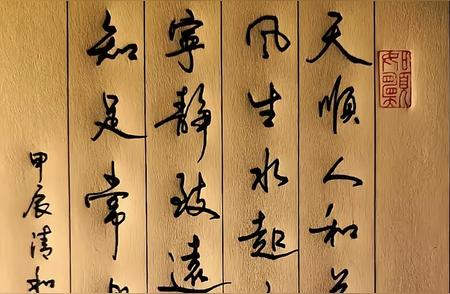 天順人和
风生水起
寧静致遠
知足常
甲辰清和